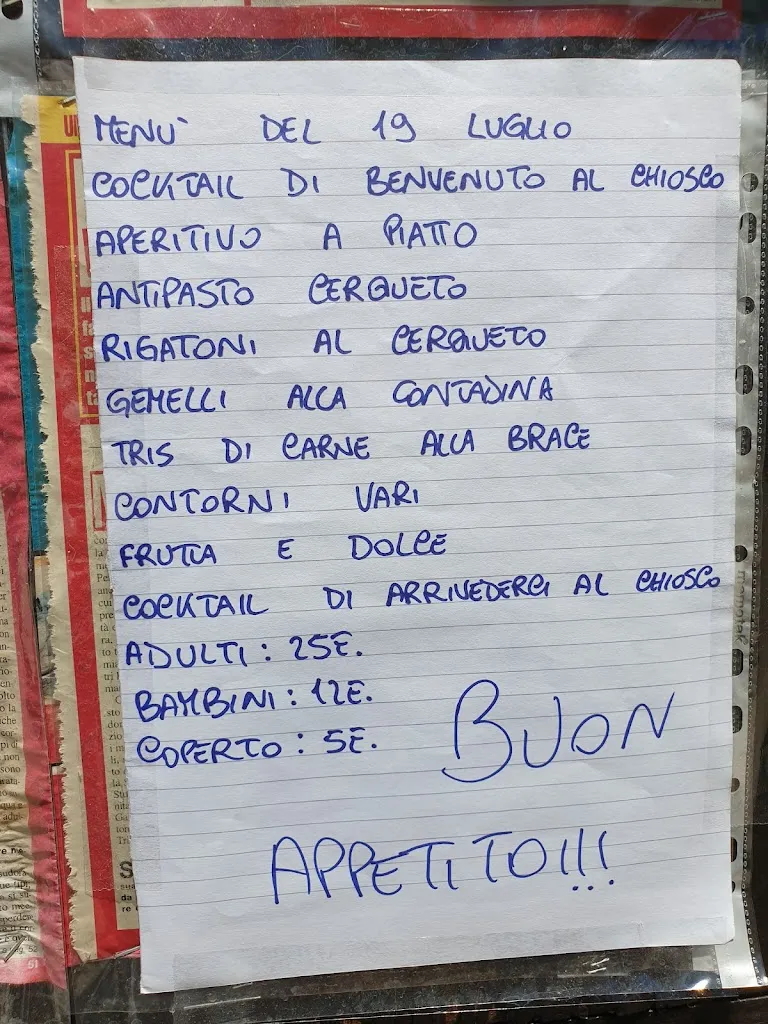 MENU' DEL 19 LUGLIO
COCKTAIL DI BENVENUTO AL CHIOSCO
APERITIVO A PIATTO
ANTIPASTO CERQUETO
RIGATONI AL CERQUETO
GEMELLI ALLA CONTADINA
TRIS DI CARNE ALLA BRACE
CONTORNI VARI
FRUTTA E DOLCE
COCKTAIL DI ARRIVEDERCI AL CHIOSCO
ADULTI: 25E.
BAMBINI: 12E.
COPERTO: 5E.
BUON
APPETITO!!!